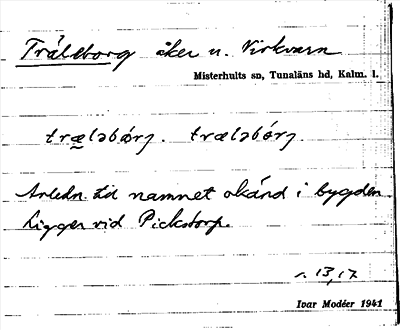 Träleborg åker u. Virkvarn
Misterhults sn, Tunaläns hd, Kalm. l.
træ̱ləbórj. træləbórj.
Anledn. till namnet okänd i bygden.
Ligger vid Pickstorp.
r. 13, 17
Ivar Modéer 1941